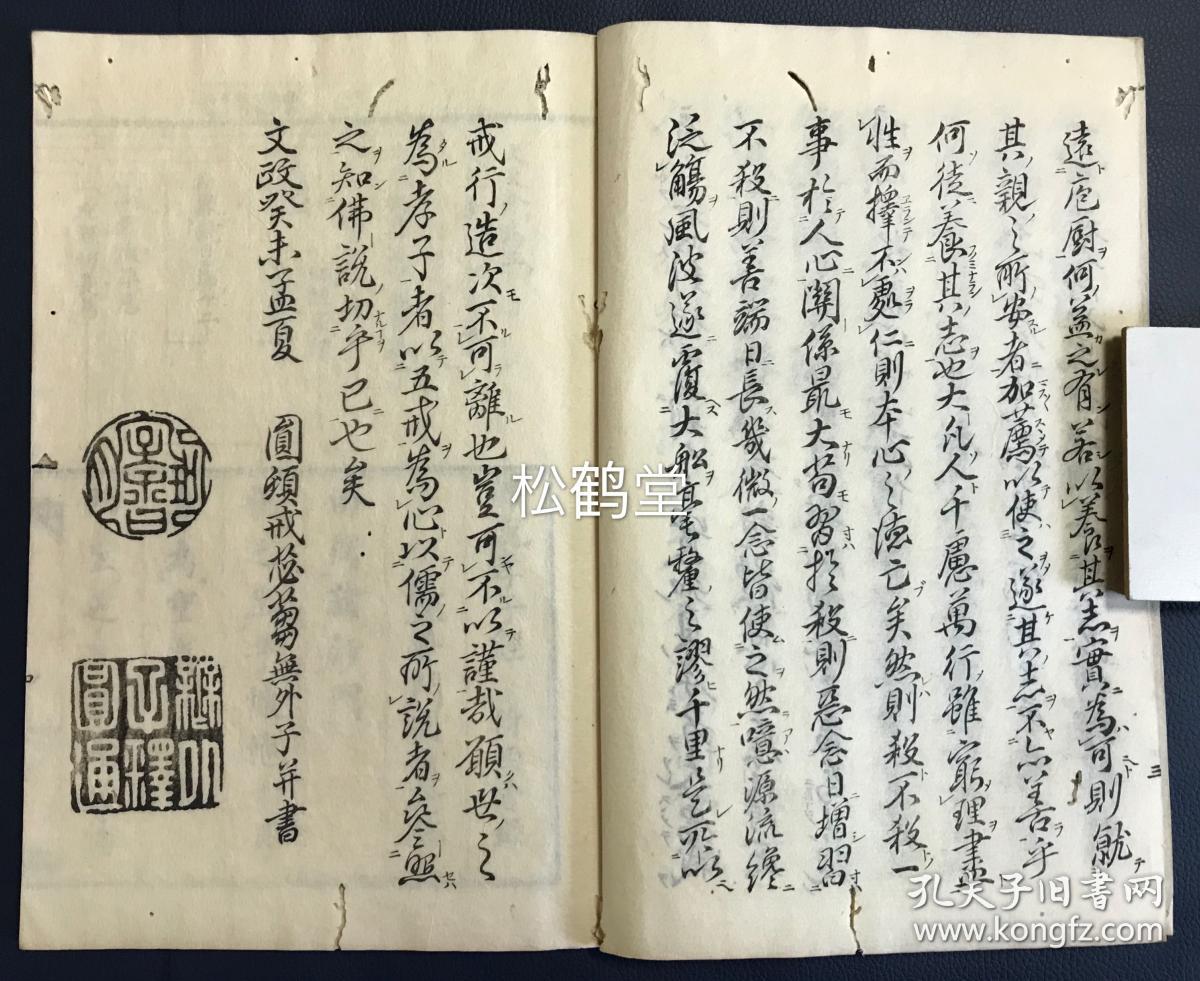 遠庖厨何益之有若以養其志實為可則就
其親之所安者加薦以使之遂其志不亦善乎
何徒養其志也大凡人千慮萬行雖窮理盡
性而擇不處仁則本心之德亡矣然則殺不殺一
事於人心關係最大苟習於殺則惡念日增習
不殺則善端日長幾微一念皆使之然噫源流纔
泛觴風波遂覆大船毫釐之謬千里是所以
戒行造次不可離也豈可不以謹哉願世之
為孝子者以五戒為心以儒之所說者參照
之知佛說切乎已也矣
文政癸未孟夏 圓頓戒苾蒭無外子并書
三
松鹤堂
孔夫子旧书网
www.kongfz.com